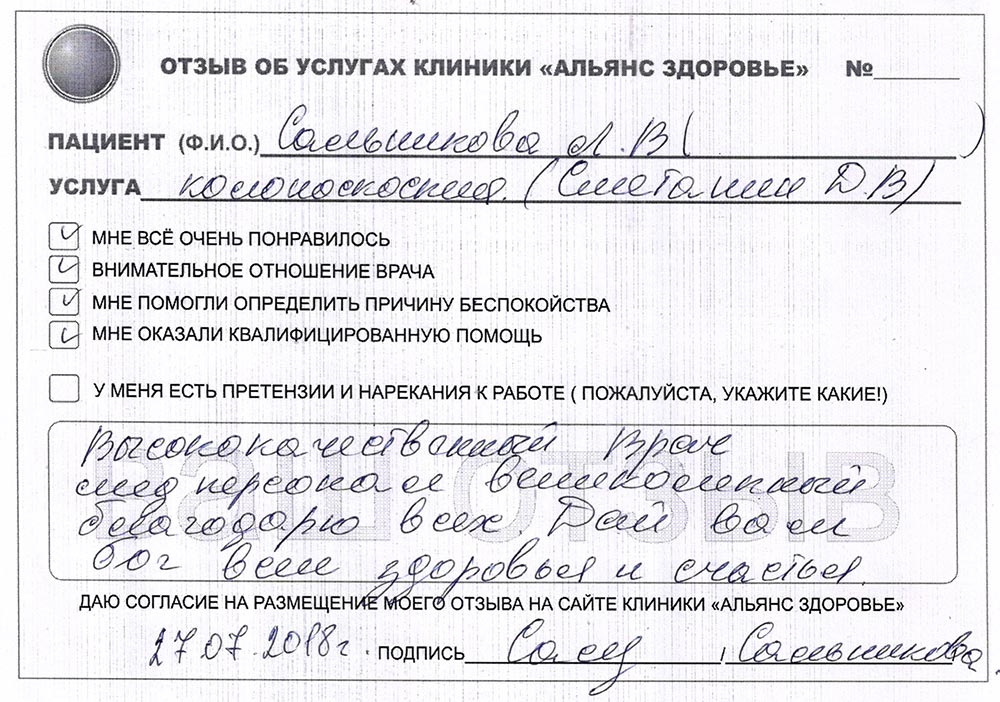 ОТЗЫВ ОБ УСЛУГАХ КЛИНИКИ «АЛЬЯНС ЗДОРОВЬЕ» №
ПАЦИЕНТ (Ф.И.О.) Сальникова Л.В ( )
УСЛУГА колоноскопия. (Сметанин Д.В)
МНЕ ВСЁ ОЧЕНЬ ПОНРАВИЛОСЬ
ВНИМАТЕЛЬНОЕ ОТНОШЕНИЕ ВРАЧА
МНЕ ПОМОГЛИ ОПРЕДЕЛИТЬ ПРИЧИНУ БЕСПОКОЙСТВА
МНЕ ОКАЗАЛИ КВАЛИФИЦИРОВАННУЮ ПОМОЩЬ
У МЕНЯ ЕСТЬ ПРЕТЕНЗИИ И НАРЕКАНИЯ К РАБОТЕ ( ПОЖАЛУЙСТА, УКАЖИТЕ КАКИЕ!)
ВАШ ОТЗЫВ
Высококачественный Врач
мед персонал великолепный
благодарю всех. Дай вам
бог всем здоровья и счастья.
ДАЮ СОГЛАСИЕ НА РАЗМЕЩЕНИЕ МОЕГО ОТЗЫВА НА САЙТЕ КЛИНИКИ «АЛЬЯНС ЗДОРОВЬЕ»
27.07.2018г. ПОДПИСЬ Салц , Сальникова